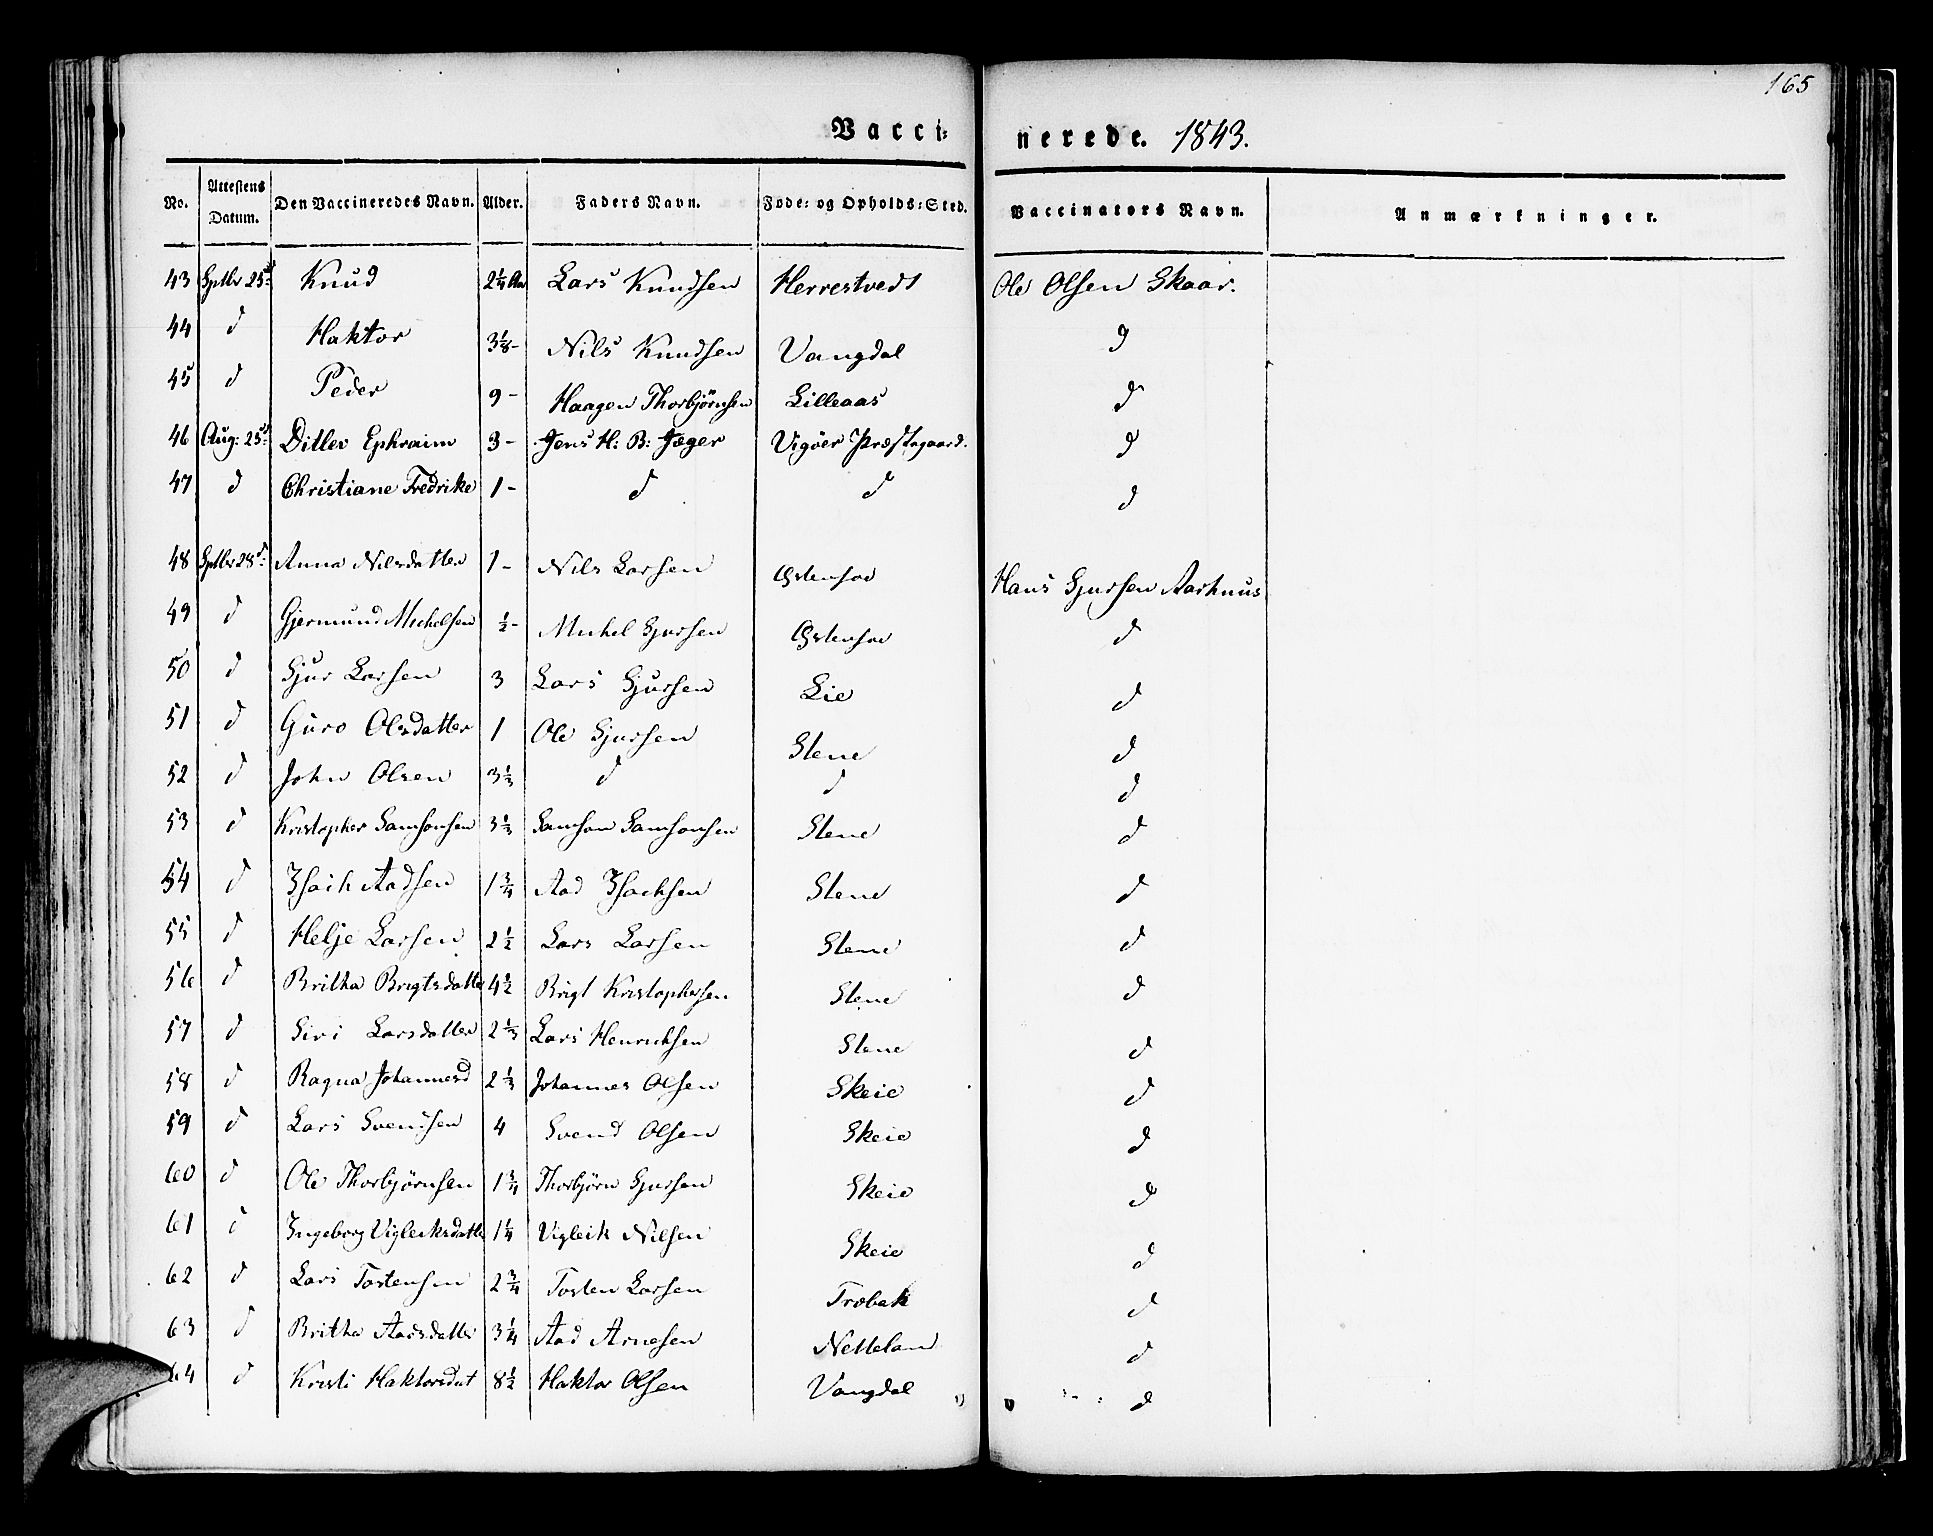 165
Vacci- nerede. 1843.
No. | Attestens Datum. | Den Vaccineredes Navn. | Alder. | Faders Navn. | Føde- og Opholds-Sted. | Vaccinators Navn. | Anmærkninger.
43 | Sptbr 25d | Knud | 2 1/4 Aar | Lars Knudsen | Herrestvedt | Ole Olsen Skaar.
44 | d | Haktor | 3 1/8 - | Nils Knudsen | Vangdal | d
45 | d | Peder | 9 - | Haagen Thorbjörnsen | Lilleaas | d
46 | Aug: 25d | Ditlev Ephraim | 3 - | Jens H: B: Jæger | Vigöer Præstegaard. | d
47 | d | Christiane Fredrike | 1 - | d | d | d
48 | Sptbr 28d | Anna Nilsdatter | 1 - | Nils Larsen | Østensøe | Hans Sjursen Aarhuus
49 | d | Gjermund Michelsen | 1/2 - | Michel Sjursen | Østensøe | d
50 | d | Sjur Larsen | 3 | Lars Sjursen | Lie | d
51 | d | Guro Olsdatter | 1 | Ole Sjursen | Stene | d
52 | d | John Olsen | 3 1/3 | d | d | d
53 | d | Kristopher Samsonsen | 3 1/3 | Samson Samsonsen | Stene | d
54 | d | Isach Aadsen | 1 3/4 | Aad Isachsen | Stene | d
55 | d | Helje Larsen | 2 1/2 | Lars Larsen | Stene | d
56 | d | Britha Brigtsdatter | 4 1/2 | Brigt Kristophersen | Stene | d
57 | d | Siri Larsdatter | 2 1/3 | Lars Henrichsen | Stene | d
58 | d | Ragna Johannesd | 2 1/3 | Johannes Olsen | Skeie | d
59 | d | Lars Svendsen | 4 | Svend Olsen | Skeie | d
60 | d | Ole Thorbjörnsen | 1 3/4 | Thorbjörn Sjursen | Skeie | d
61 | d | Ingeborg Vigleiksdatter | 1 1/4 | Vigleik Nilsen | Skeie | d
62 | d | Lars Tostensen | 2 3/4 | Tosten Larsen | Trobak | d
63 | d | Britha Aadsdatter | 3 1/4 | Aad Arnesen | Netteland | d
64 | d | Kristi Haktorsdat | 8 1/2 | Haktor Olsen | Vangdal | d